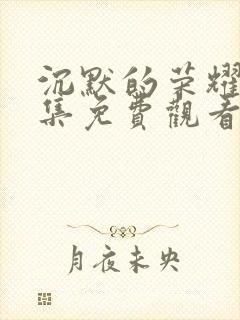 沉默的荣耀
集免費觀看
月夜未央